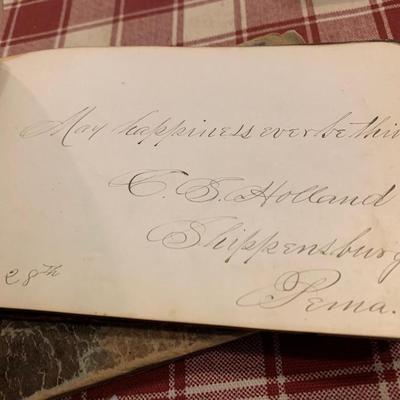 May happiness ever be thin
C. S. Holland
Shippensburg
28th
Penna.